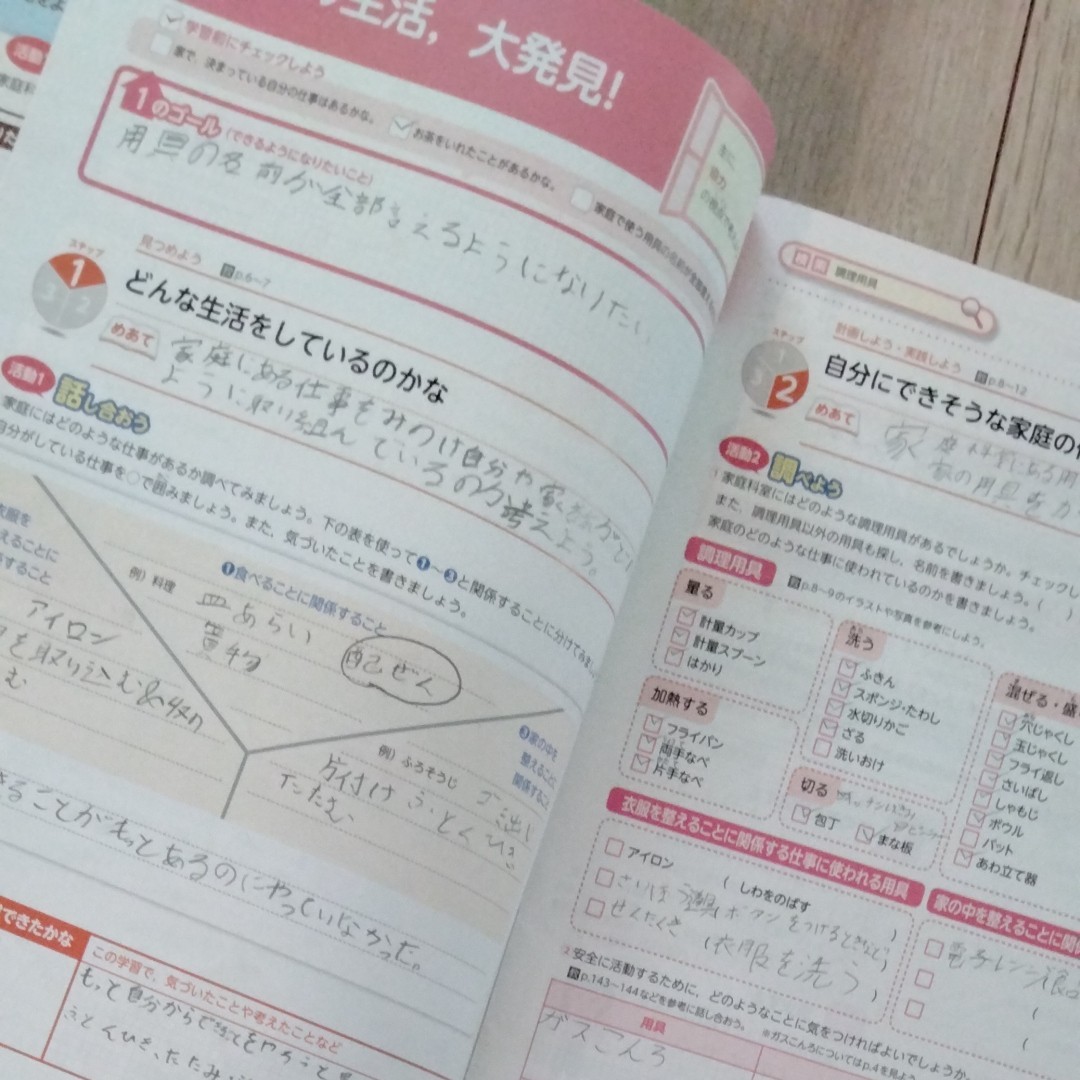 生活，大発見!
学習前にチェックしよう
家で，決まっている自分の仕事はあるかな。
お茶をいれたことがあるかな。
家庭で使う用具の名前が
1のゴール(できるようになりたいこと)
用具の名前が全部言えるようになりたい
ステップ
1
見つめよう p.6〜7
どんな生活をしているのかな
めあて
家庭にある仕事をみつけ自分や家族がどの
ように取り組んでいるのか考えよう。
活動1 話し合おう
家庭にはどのような仕事があるか調べてみましょう。下の表を使って❶〜❸と関係することに分けてみま
自分がしている仕事を○で囲みましょう。また，気づいたことを書きましょう。
衣服を
えることに
関係すること
アイロン
を取り込む&収
む
❶食べることに関係すること
例）料理
皿あらい
買物
自己ぜん
❸家の中を
整えることに
関係すること
例）ふろそうじ
ゴミ出し
片付け ふとんひき
たたむ
きることがもっとあるのにやっていなかった。
できたかな
この学習で，気づいたことや考えたことなど
もっと自分からできることをやろうと思
ふとんひき、たたみ、
調理用具
ステップ
2
計画しよう・実践しよう p.8〜12
自分にできそうな家庭の仕
めあて
家庭科室にある用
家の用具を
活動2 調べよう
1 家庭科室にはどのような調理用具があるでしょうか。チェックし
また，調理用具以外の用具も探し，名前を書きましょう。( )
家庭のどのような仕事に使われているのかを書きましょう。
p.8〜9のイラストや写真を参考にしよう。
調理用具
量る
計量カップ
計量スプーン
はかり
加熱する
フライパン
両手なべ
片手なべ
洗う
ふきん
スポンジ・たわし
水切りかご
ざる
洗いおけ
切る
包丁
まな板
混ぜる・盛
穴じゃくし
玉じゃくし
フライ返し
さいばし
しゃもじ
ボウル
バット
あわ立て器
衣服を整えることに関係する仕事に使われる用具
アイロン
( しわをのばす )
さいほう道具
ボタンをつけるときなど)
せんたくき
(衣服を洗う )
家の中を整えることに関
電子レン
2 安全に活動するために，どのようなことに気をつければよいでしょうか。
p.143〜144などを参考に話し合おう。
※ガスこんろについてはp.4を見よう
用具
ガスこんろ